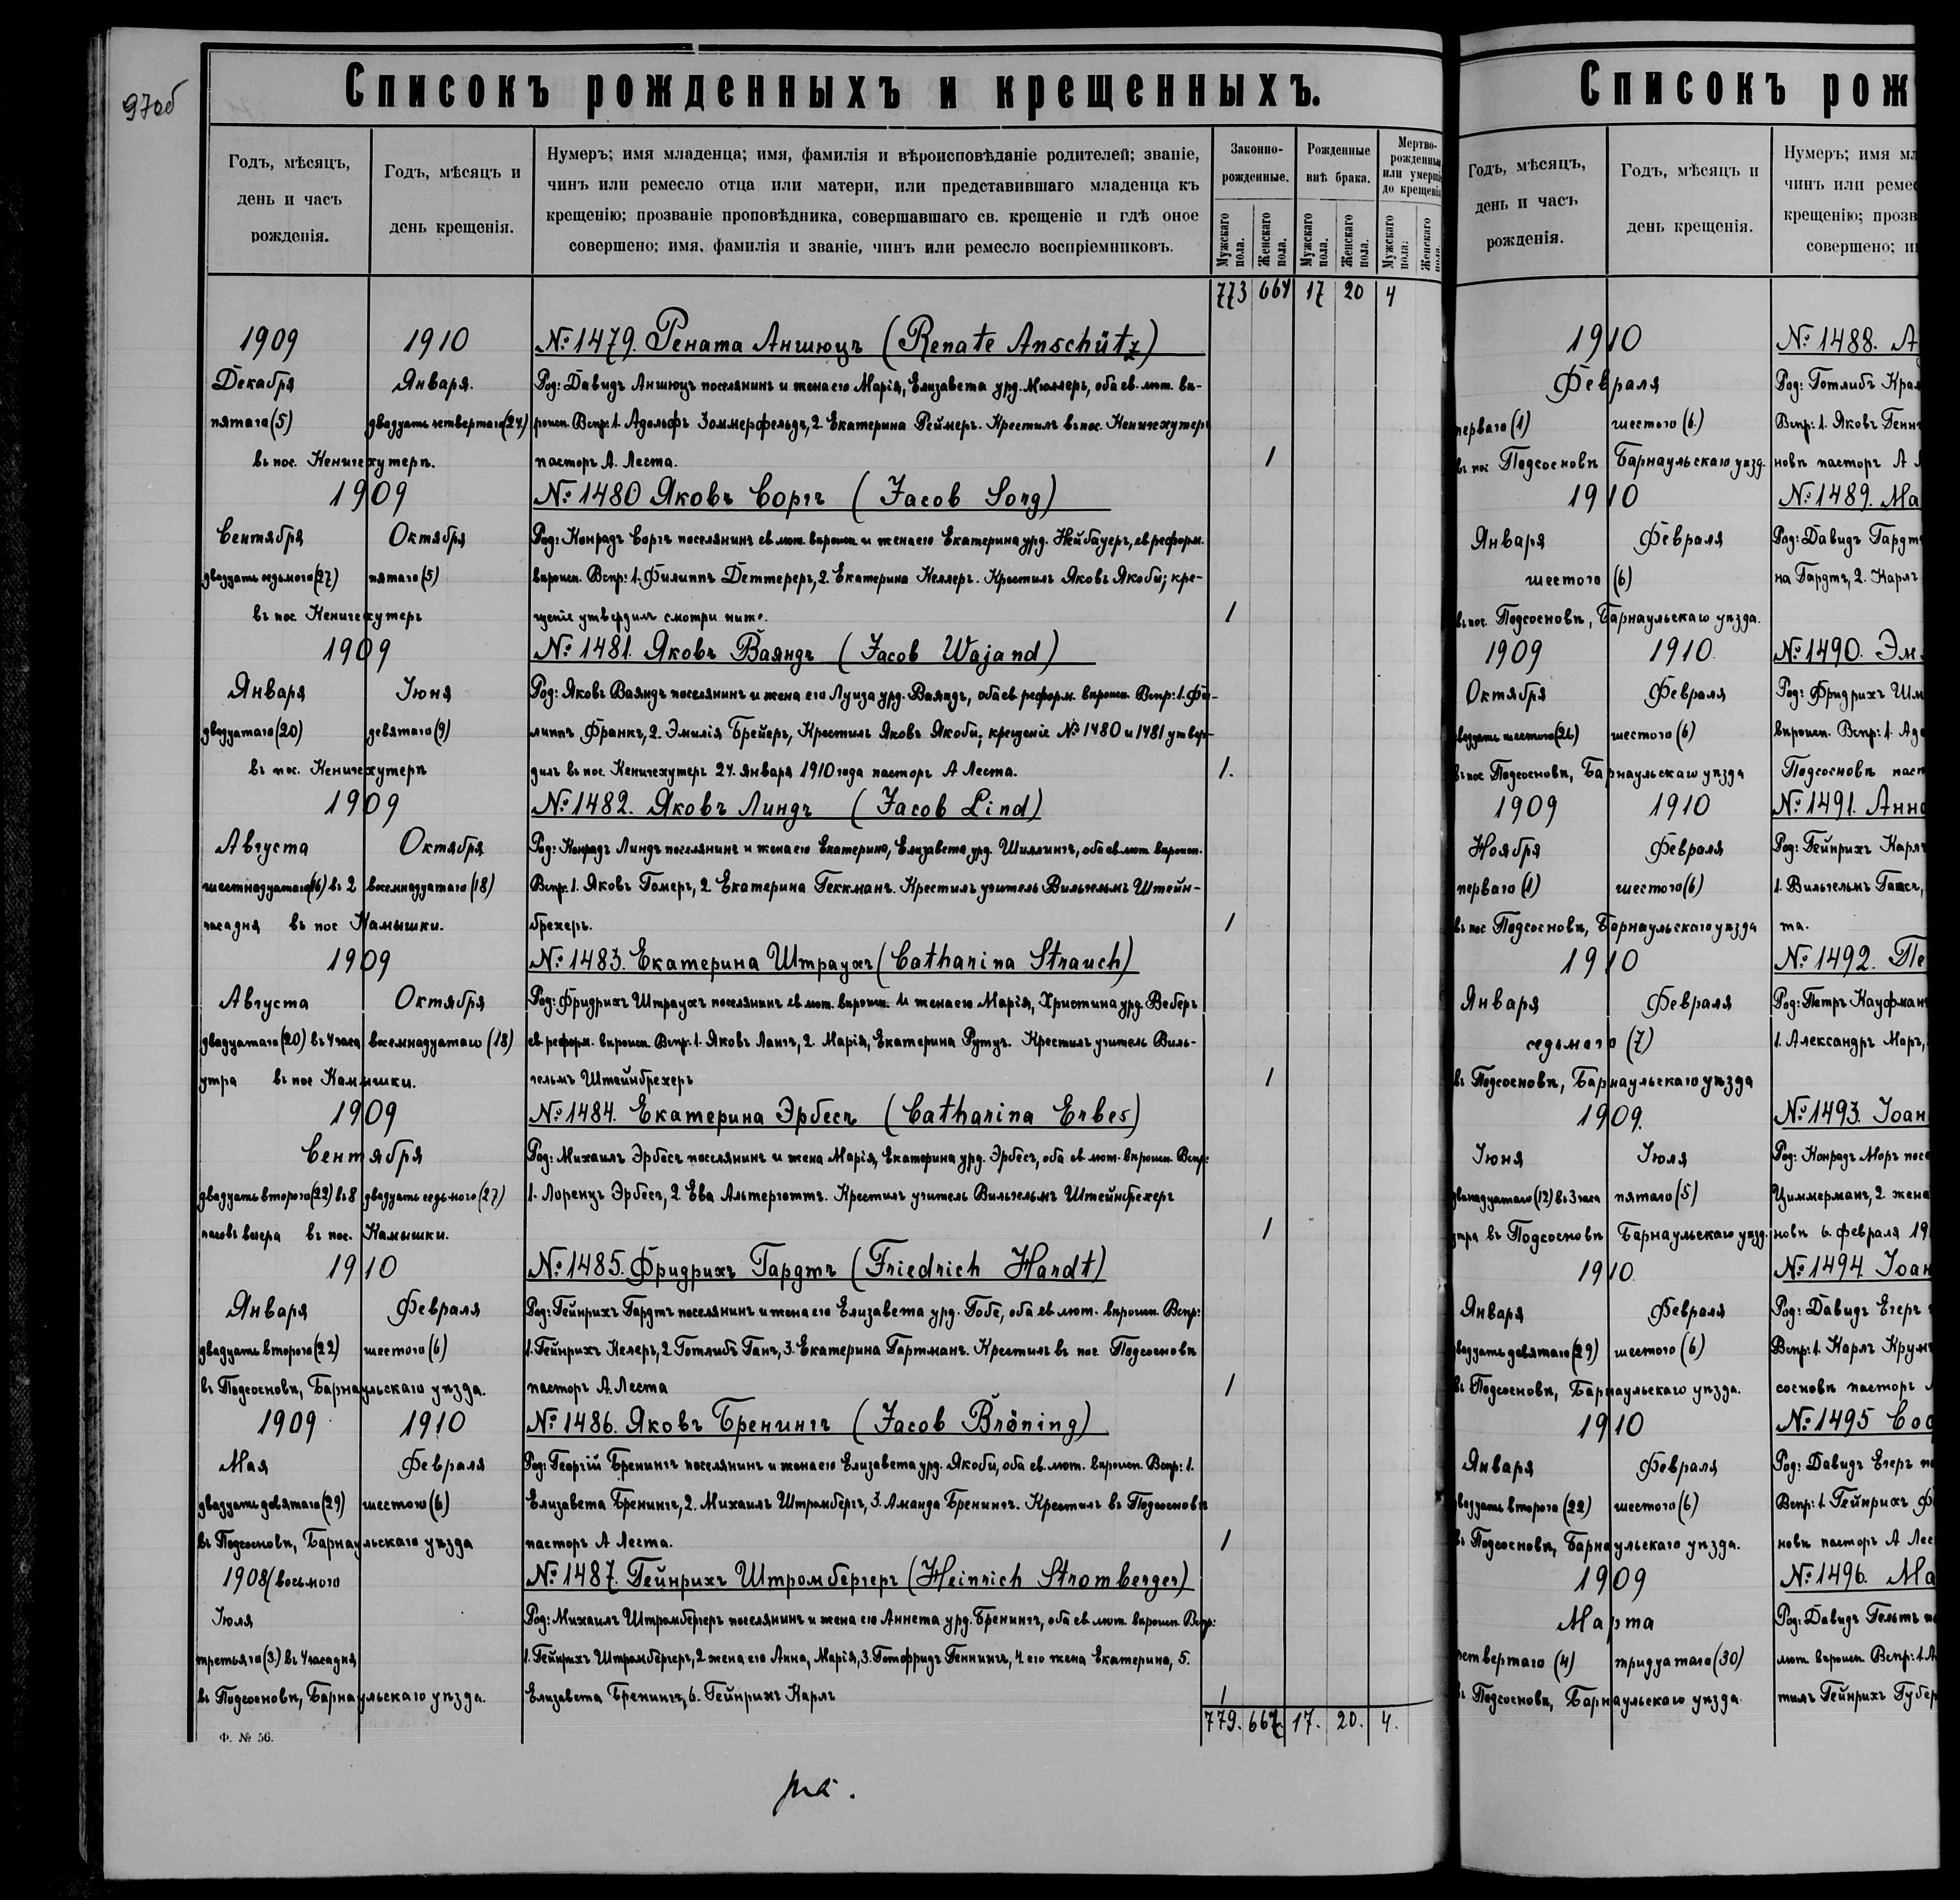 97об
Списокъ рожденныхъ и крещенныхъ.
Годъ, мѣсяцъ, день и часъ рожденія.
Годъ, мѣсяцъ и день крещенія.
Нумеръ; имя младенца; имя, фамилія и вѣроисповѣданіе родителей; званіе,
чинъ или ремесло отца или матери, или представившаго младенца къ
крещенію; прозваніе проповѣдника, совершавшаго св. крещеніе и гдѣ оное
совершено; имя, фамилія и званіе, чинъ или ремесло воспріемниковъ.
Законно-рожденные.
Рожденные внѣ брака.
Мертво-рожденные или умершіе до крещенія
Мужскаго пола. Женскаго пола. Мужскаго пола. Женскаго пола. Мужскаго пола. Женскаго пола.
773 664 17 20 4
1909 1910 №1479. Рената Аншюцъ (Renate Anschütz)
Декабря Января. Род: Давидъ Аншюцъ поселянинъ и жена его Марія, Елизавета урд. Мюллеръ, оба ев. лют. вѣ-
пятаго (5) двадцать четвертаго (24) роисп. Вспр: 1. Адольфъ Зоммерфельдъ, 2. Екатерина Реймеръ. Крестилъ въ пос. Кеничехутерѣ
въ пос. Кеничехутерѣ. пасторъ А. Леста. 1
1909 №1480 Яковъ Соргъ (Jacob Sorg)
Сентября Октября Род: Конрадъ Соргъ поселянинъ ев лют. вѣроисп. и жена его Екатерина урд. Нейбауеръ, ев реформ.
двадцать седьмого (27) пятаго (5) вѣроисп. Вспр: 1. Филиппъ Деттереръ, 2. Екатерина Келлеръ. Крестилъ Яковъ Якоби; кре-
въ пос. Кеничехутеръ щеніе утвердилъ смотри ниже. 1
1909 №1481. Яковъ Ваяндъ (Jacob Wajand)
Января Іюня Род: Яковъ Ваяндъ поселянинъ и жена его Луиза урд. Ваяндъ, оба ев реформ. вѣроисп. Вспр: 1. Фи-
двадцатаго (20) девятаго (9) липпъ Франкъ, 2. Эмилія Брейеръ, Крестилъ Яковъ Якоби; крещеніе № 1480 и 1481 утвер-
въ пос. Кеничехутерѣ дилъ въ пос. Кеничехутеръ 24. января 1910 года пасторъ А Леста. 1.
1909 №1482. Яковъ Линдъ (Jacob Lind)
Августа Октября Род: Конрадъ Линдъ поселянинъ и жена его Екатерина, Елизавета урд. Шиллингъ, оба ев лют вѣроисп.
шестнадцатаго (16) въ 2 восемнадцатаго (18) Вспр: 1. Яковъ Гомеръ, 2. Екатерина Геккманъ. Крестилъ учитель Вильгельмъ Штейн-
часа дня въ пос Камышки. брехеръ. 1
1909 №1483. Екатерина Штраухъ (Catharina Strauch)
Августа Октября Род: Фридрихъ Штраухъ поселянинъ ев лют. вѣроисп. и жена его Марія, Христина урд. Веберъ
двадцатаго (20) въ 4 часа восемнадцатаго (18) ев. реформ. вѣроисп. Вспр: 1. Яковъ Лангъ, 2. Марія, Екатерина Рутцъ. Крестилъ учитель Виль-
утра въ пос Камышки. гельмъ Штейнбрехеръ 1
1909 №1484. Екатерина Эрбесъ (Catharina Erbes)
Сентября Род: Михаилъ Эрбесъ поселянинъ и жена Марія, Екатерина урд. Эрбесъ, оба ев лют. вѣроисп. Вспр:
двадцать второго (22) въ 8 двадцать седьмого (27) 1. Лоренцъ Эрбесъ, 2. Ева Альтерготтъ. Крестилъ учитель Вильгельмъ Штейнбрехеръ
часовъ вечера въ пос. Камышки. 1
1910 №1485. Фридрихъ Гардтъ (Friedrich Hardt)
Января Февраля Род: Гейнрихъ Гардтъ поселянинъ и жена его Елизавета урд. Гобе, оба ев лют. вѣроисп. Вспр:
двадцать второго (22) шестого (6) 1. Гейнрихъ Келеръ, 2. Готлибъ Ганъ, 3. Екатерина Гартманъ. Крестилъ въ пос. Подсосновѣ
въ Подсосновѣ, Барнаульскаго уѣзда. пасторъ А. Леста 1
1909 1910 №1486. Яковъ Бренингъ (Jacob Bröning)
Мая Февраля Род: Георгій Бренингъ поселянинъ и жена его Елизавета урд. Якоби, оба ев. лют. вѣроисп. Вспр: 1.
двадцать девятаго (29) шестого (6) Елизавета Бренингъ, 2. Михаилъ Штромбергъ, 3. Аманда Бренингъ. Крестилъ въ Подсосновѣ
въ Подсосновѣ, Барнаульскаго уѣзда пасторъ А Леста. 1
1908 (восьмого №1487. Гейнрихъ Штромбергеръ (Heinrich Stromberger)
Іюля Род: Михаилъ Штромбергеръ поселянинъ и жена его Аннета урд. Бренингъ, оба ев лют. вѣроисп. Вспр:
третьяго (3.) въ 4 часа дня 1. Гейнрихъ Штромбергеръ, 2 жена его Анна, Марія, 3. Готфридъ Геннингъ, 4 его жена Екатерина, 5.
въ Подсосновѣ, Барнаульскаго уѣзда. Елизавета Бренингъ, 6. Гейнрихъ Карлъ 1
779. 667. 17. 20. 4.
Ф. № 56.
Списокъ рож
Годъ, мѣсяцъ, день и часъ рожденія.
Годъ, мѣсяцъ и день крещенія.
Нумеръ; имя мл
чинъ или ремес
крещенію; прозв
совершено; и
1910 №1488. А
Февраля Род: Готлибъ Кра
перваго (1) шестого (6.) Вспр: 1. Яковъ Генн
въ пос Подсосновѣ Барнаульскаго уѣзд. новѣ пасторъ А
1910 №1489. Ма
Января Февраля Род: Давидъ Гардт
шестого (6) на Гардтъ, 2. Карлъ
въ пос. Подсосновѣ, Барнаульскаго уѣзда.
1909 1910. №1490. Эм
Октября Февраля Род: Фридрихъ Шм
двадцать шестого (26) шестого (6) вѣроисп. Вспр: 1. Ад
въ пос Подсосновѣ, Барнаульскаго уѣзда Подсосновѣ паст
1909 1910 №1491. Анна
Ноября Февраля Род: Гейнрихъ Карлъ
перваго (1) шестого (6) 1. Вильгельмъ
въ пос Подсосновѣ, Барнаульскаго уѣзда та.
1910 №1492. Пе
Января Февраля Род: Петръ Кауфман
седьмаго (7) 1. Александръ Моръ,
въ Подсосновѣ, Барнаульскаго уѣзда
1909. №1493. Іоан
Іюня Іюля Род: Конрадъ Моръ посе
двенадцатаго (12) въ 3 часа пятаго (5) Циммерманъ, 2. жена
утра въ Подсосновѣ Барнаульскаго уѣзд. новѣ 6. февраля 19
1910. №1494. Іоан
Января Февраля Род: Давидъ Егеръ
двадцать девятаго (29) шестого (6) Вспр: 1. Карлъ Крум
въ Подсосновѣ, Барнаульскаго уѣзда. сосновѣ пасторъ
1910 №1495 Со
Января Февраля Род: Давидъ Егеръ по
двадцать второго (22) шестого (6) Вспр: 1. Гейнрихъ Ф
въ Подсосновѣ, Барнаульскаго уѣзда. новѣ пасторъ А Лес
1909 №1496. Ма
Марта Род: Давидъ Гельтъ п
четвертаго (4) тридцатаго (30) лют вѣроисп Вспр: 1. А
въ Подсосновѣ, Барнаульскаго уѣзда. тилъ Гейнрихъ Губер